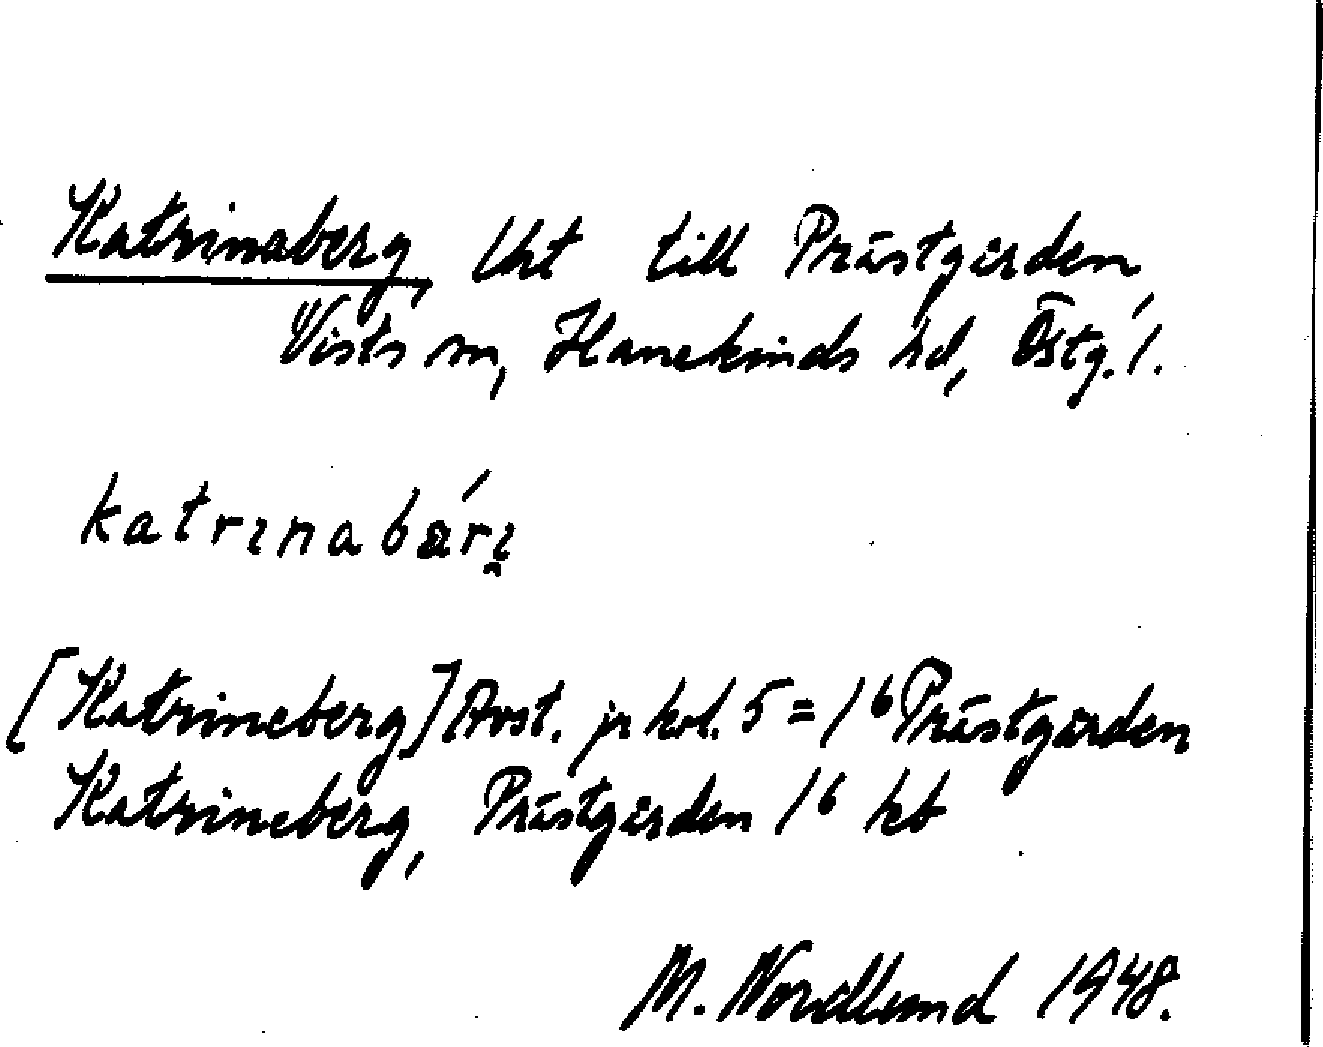 Katrinaberg, lht till Prästgården,
Vists sn, Hanekinds hd, Östg. l.
katrɩnabärɩ̯́
[Katrineberg] Avst. jr kol. 5 = 1⁶ Prästgården
Katrineberg, Prästgården 1⁶ kb
M. Nordlund 1948.